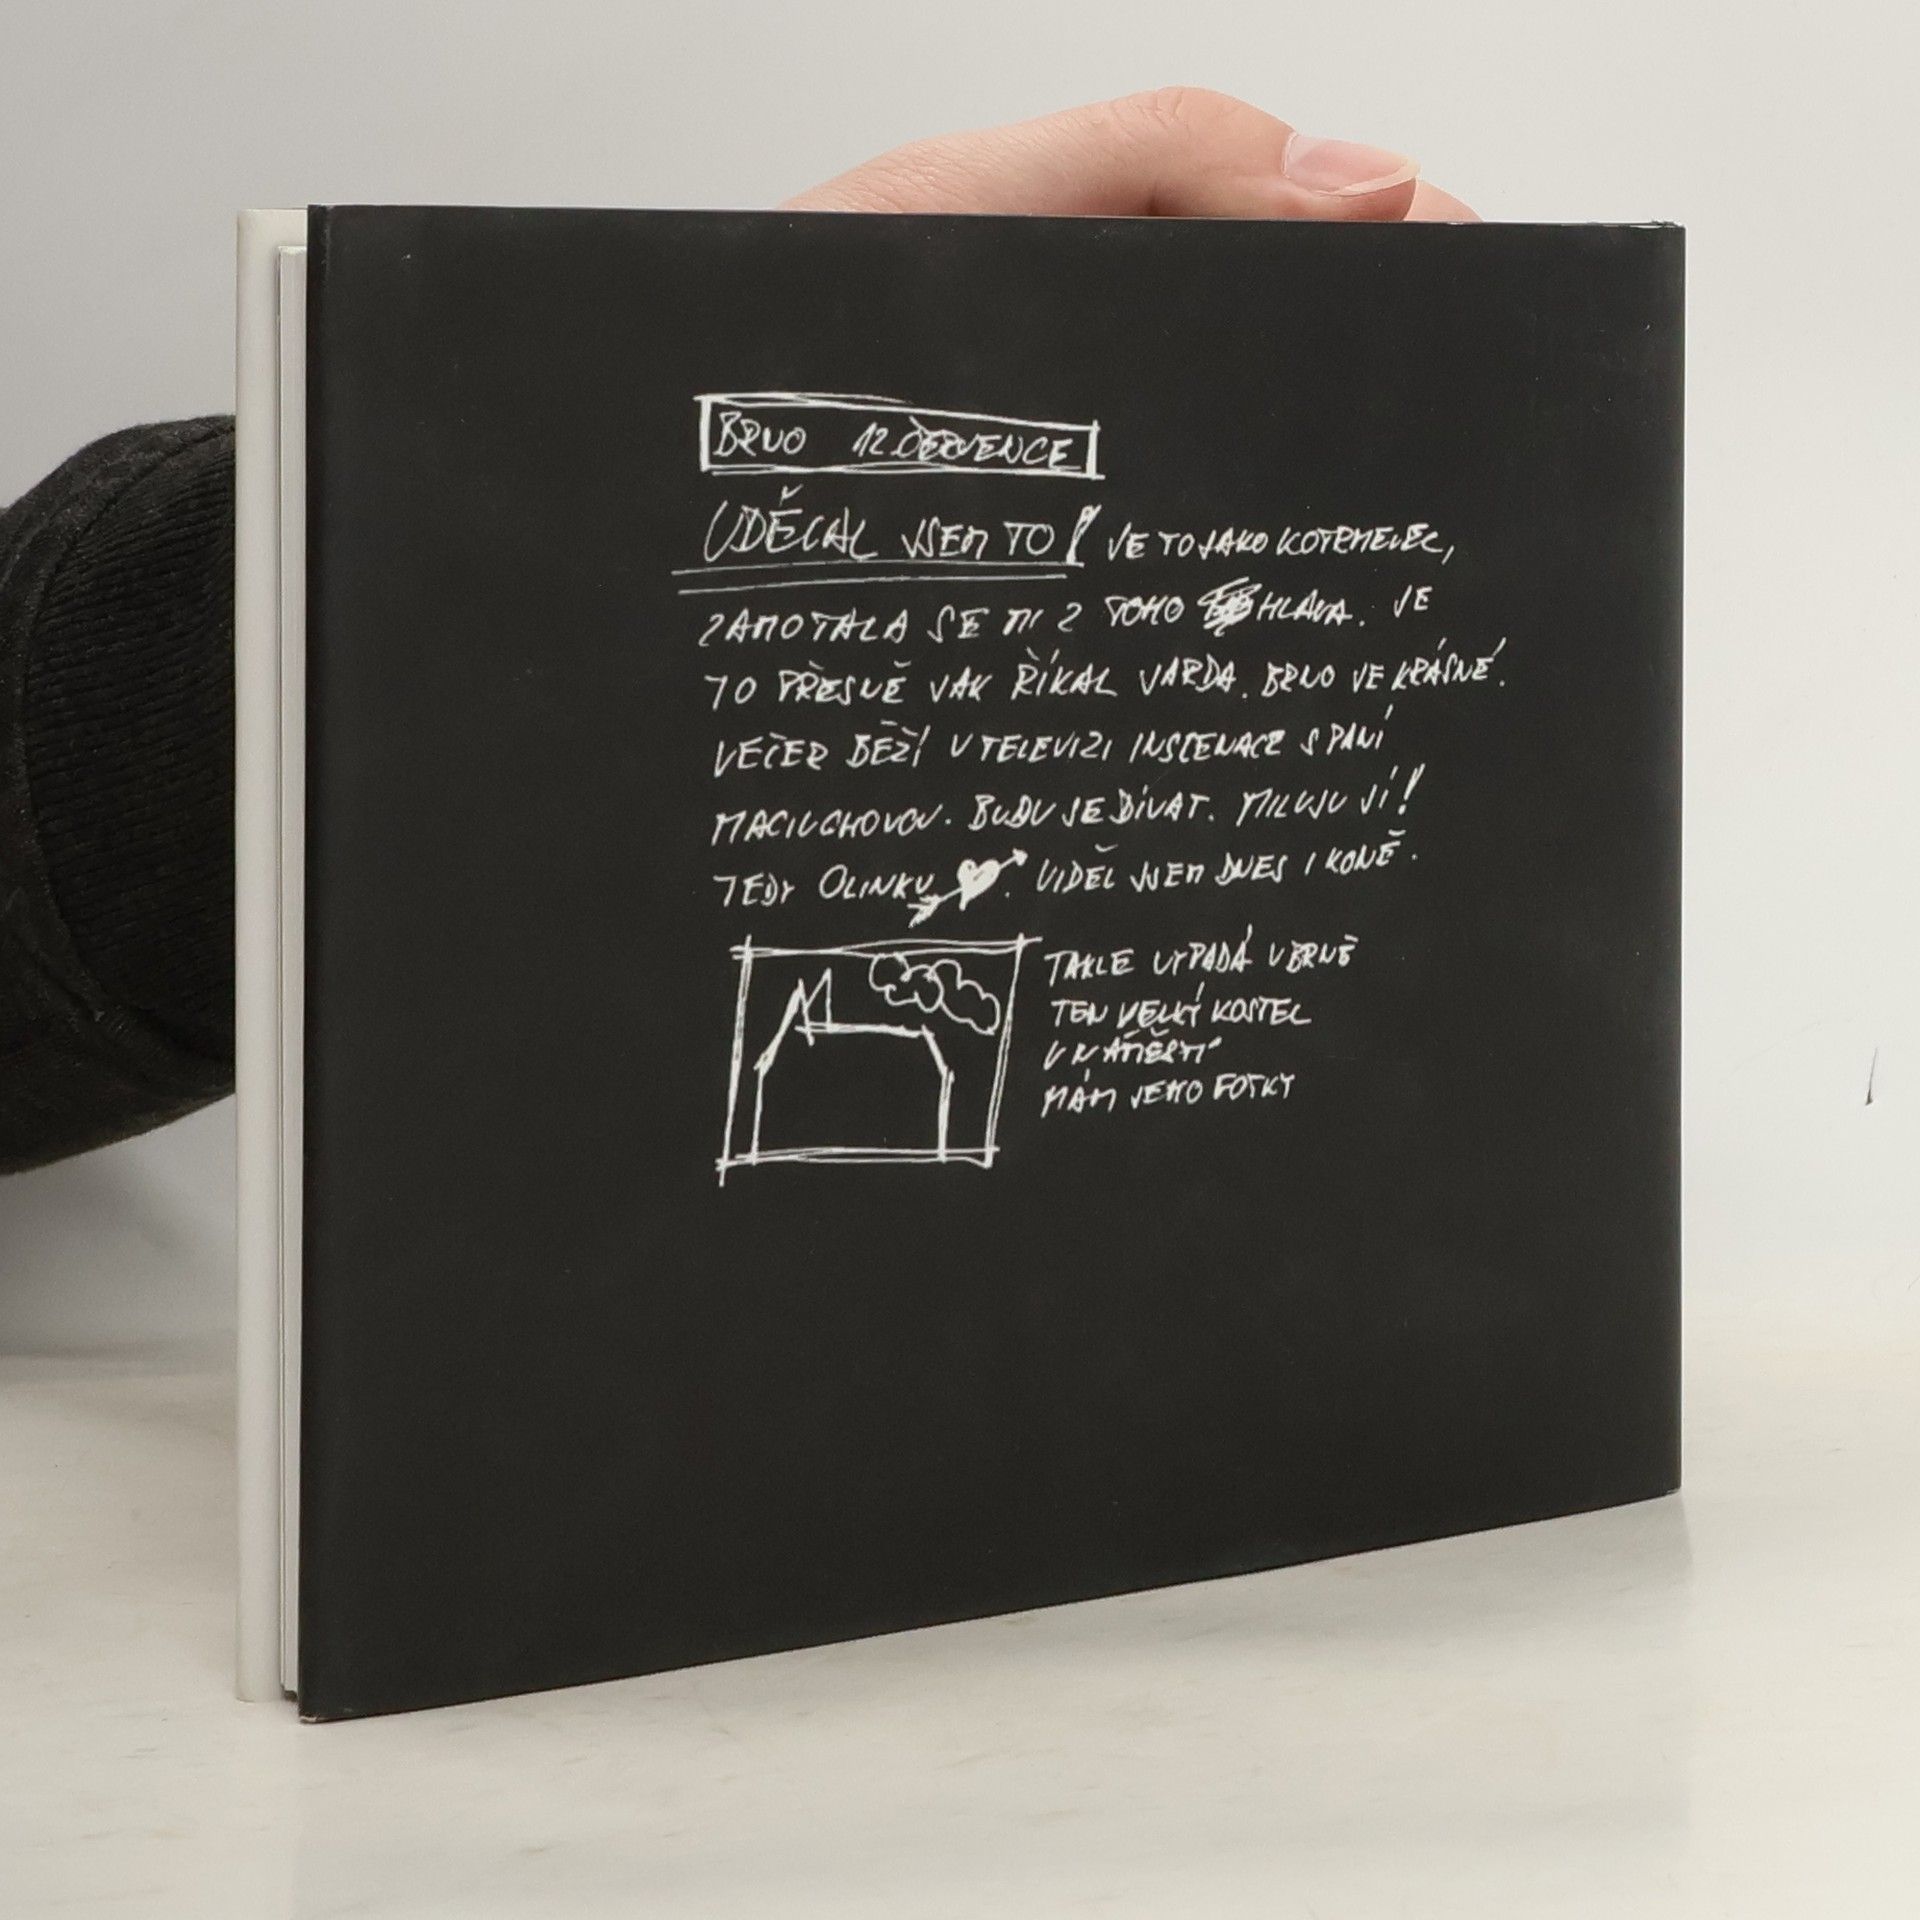 BRNO 12. ČERVENCE
UDĚLAL JSEM TO! JE TO JAKO KOTRMELEC,
ZAMOTALA SE MI Z TOHO HLAVA. JE
TO PŘESNĚ JAK ŘÍKAL JARDA. BRNO JE KRÁSNÉ.
VEČER BĚŽÍ V TELEVIZI INSCENACE S PANÍ
MACIUCHOVOU. BUDU SE DÍVAT. MILUJU JÍ!
TEDY OLINKU. VIDĚL JSEM DNES I KONĚ.
TAKLE VYPADÁ V BRNĚ
TEN VELKÝ KOSTEL
V NÁMĚSTÍ
MÁM JEHO FOTKY